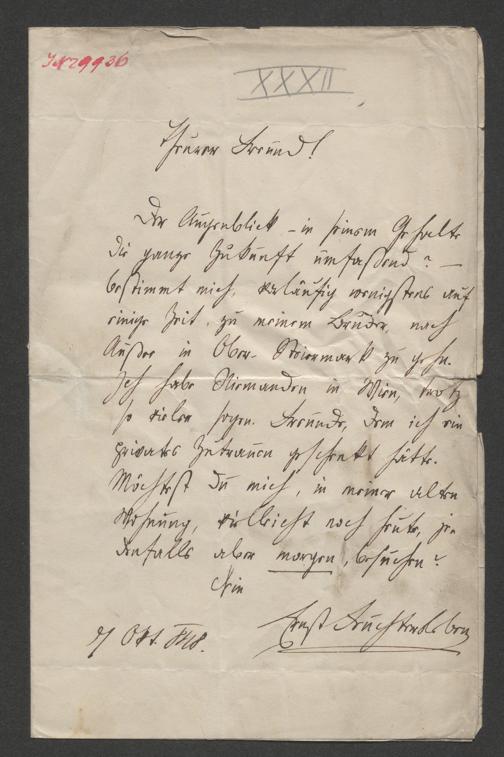 I.N. 29936
XXXII
Theurer Freund!
Der Augenblick – in seinem Gehalte
die ganze Zukunft umfassend? –
bestimmt mich, vorläufig wenigstens auf
einige Zeit, zu meinem Bruder, nach
Aussee in Ober-Steiermark zu gehn.
Ich habe Niemanden in Wien, trotz
so vieler sogen. Freunde, dem ich ein
privates Zutrauen geschenkt hätte.
Möchtest Du mich, in meiner alten
Wohnung, vielleicht noch heute, je-
denfalls aber morgen, besuchen?
Dein
Ernst Feuchtersleben
Okt. 848.